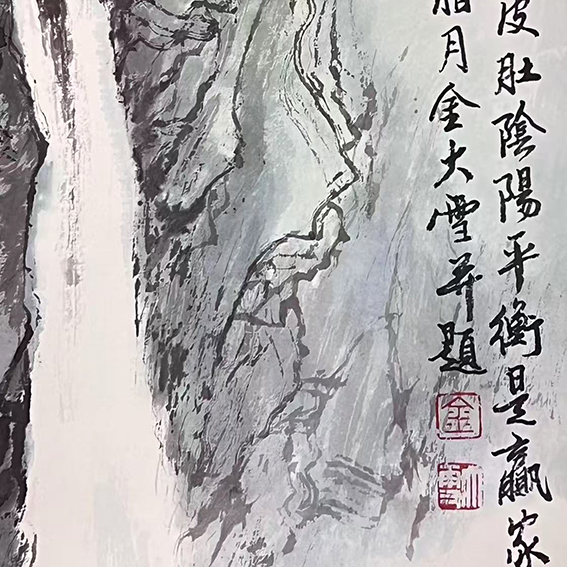 皮肚陰陽平衡是贏家
腊月金大雪并題
金